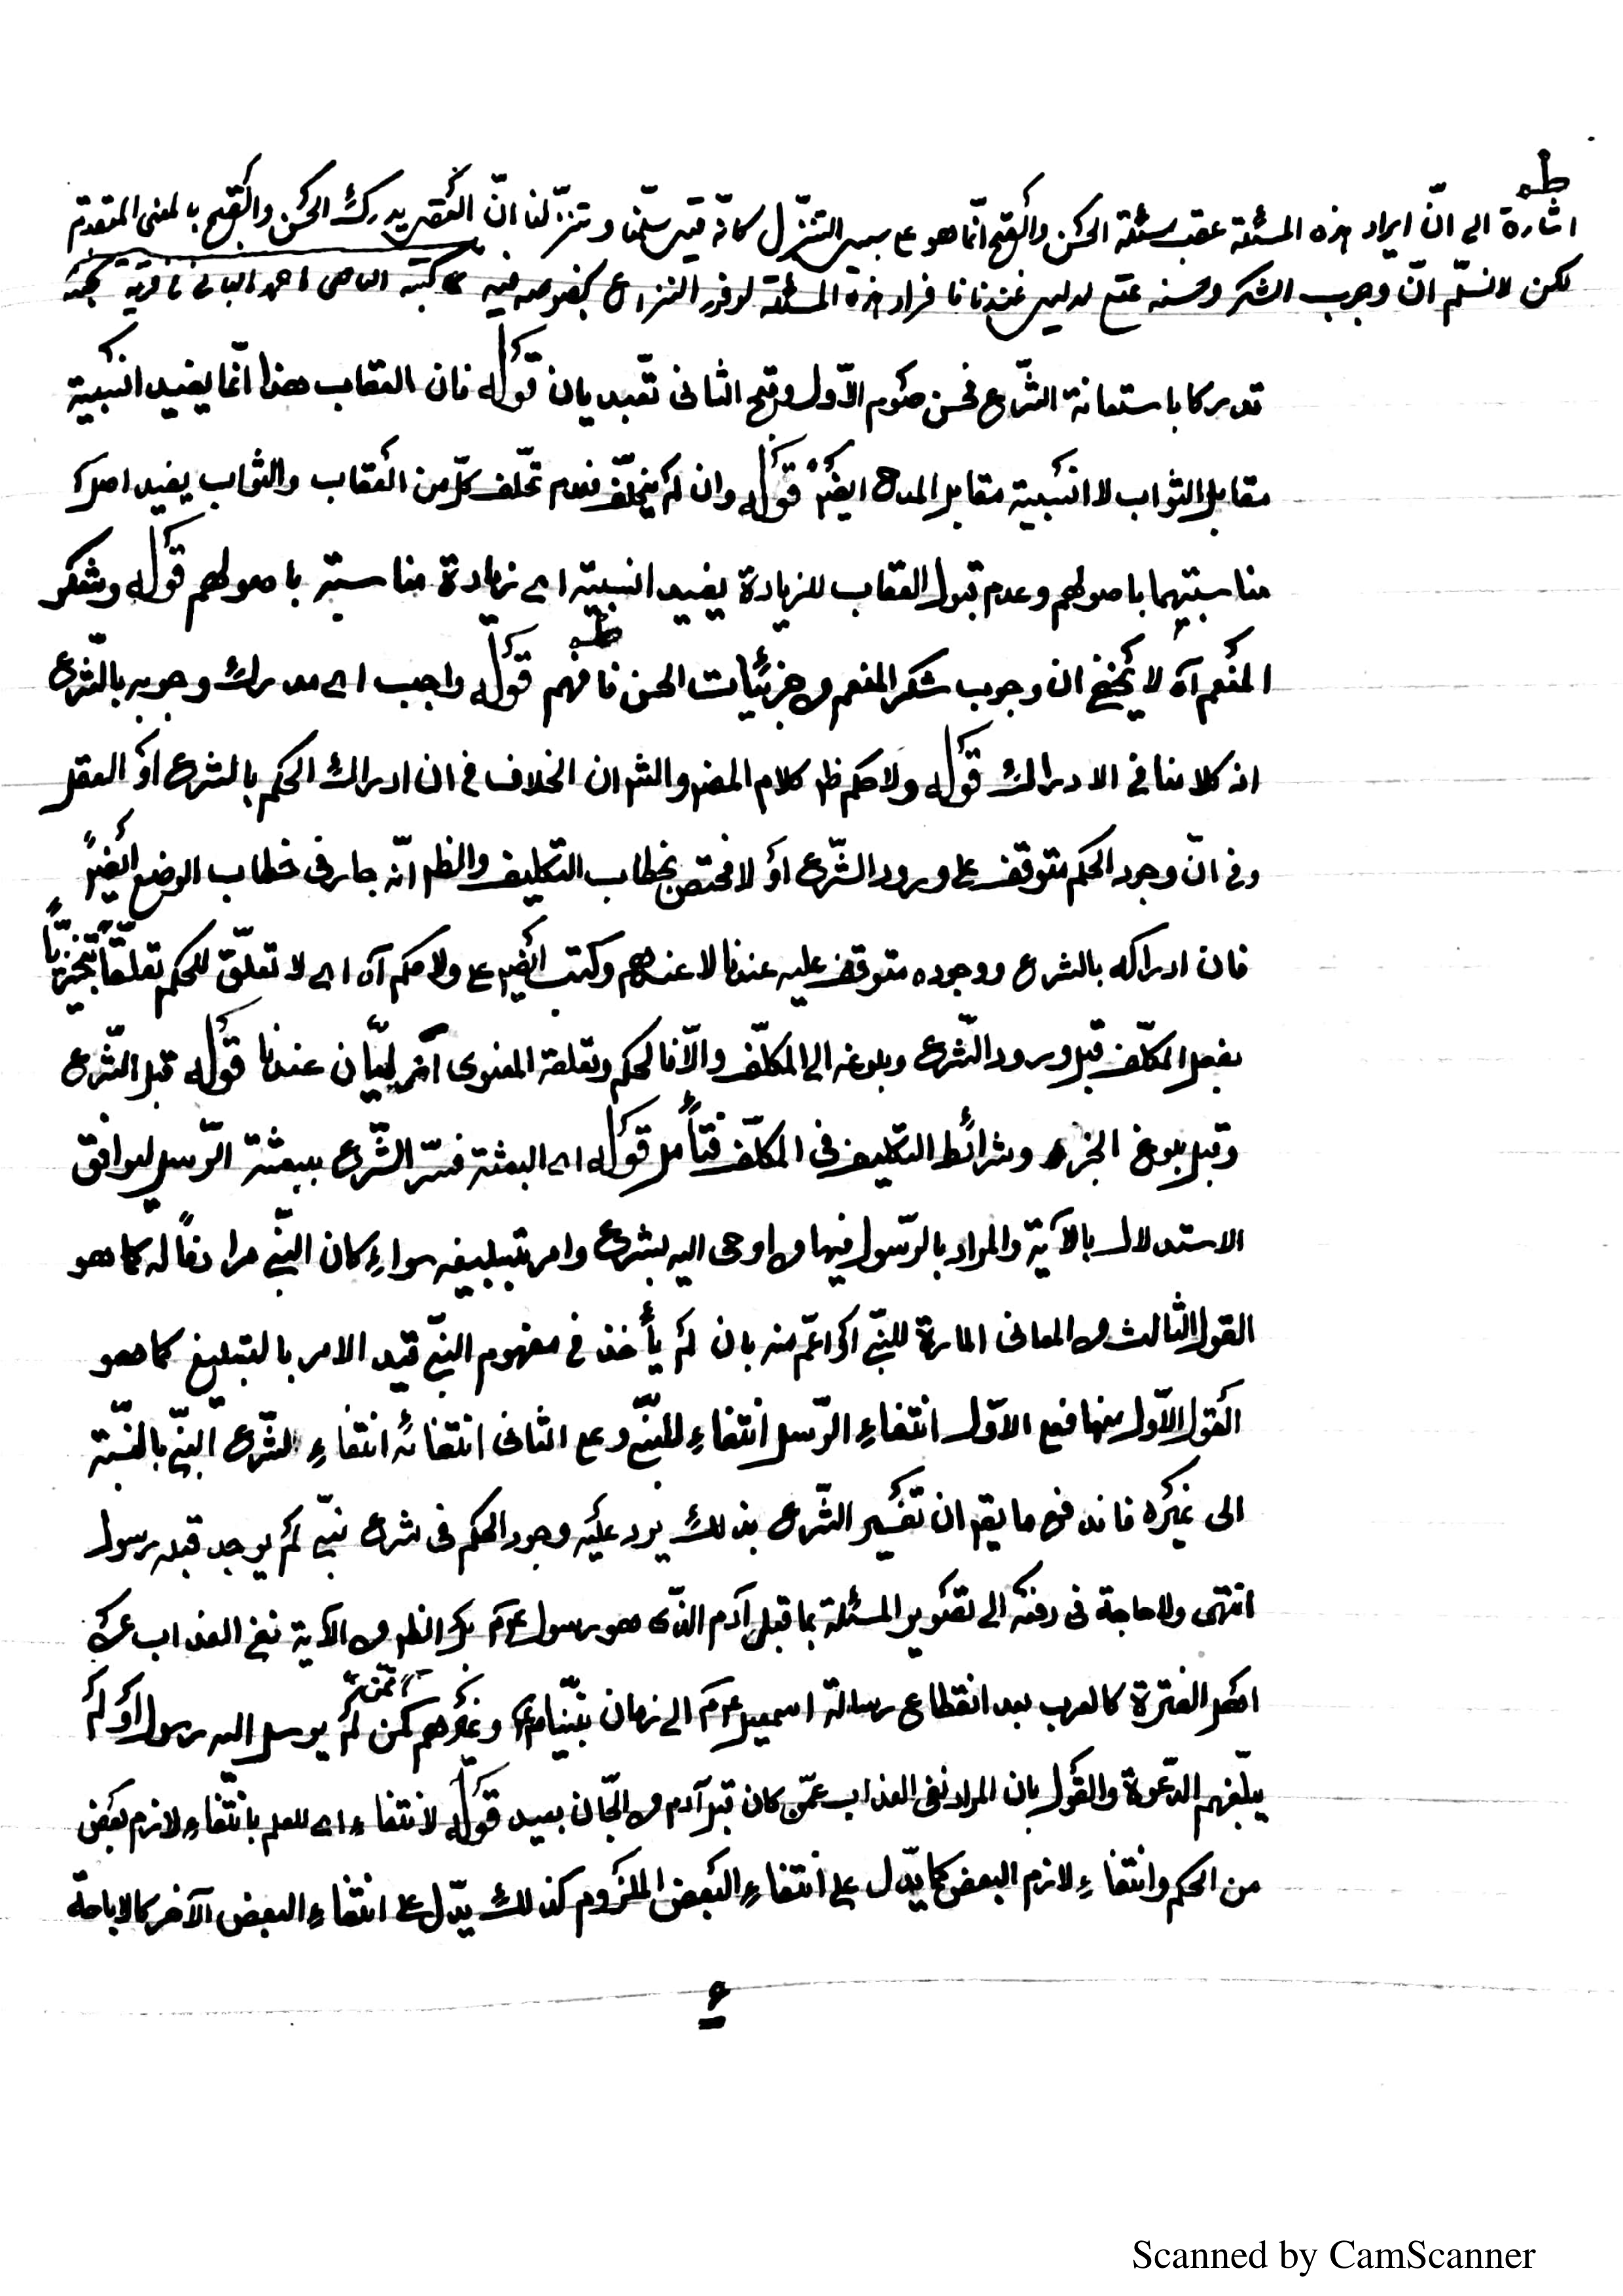 اشارة الى انّ ايراد هذه المسئلة عقب مسئلة الحسن والقبح انّما هو ع سبيل التنزّل كانّه قيل سلّمنا وتنزّلنا انّ العقل يدرك الحسن والقبح بالمعنى المتقدم
لكن لا نسلّم انّ وجوب الشكر وحسنه عقلى لدليل عندنا فافراد هذه المسئلة لوفور النزاع بخصوصه فيه كتبه القاضى احمد
تدركا باستعانة الشّرع فحسن صوم الاوّل وقبح الثانى تعبديان قوله فان العقاب هذا انّما يفيد انسبية
مقابل الثواب لا انسبية مقابل المدح ايضً قوله وان لم يتخلّف فعدم تخلّف كلّ من العقاب والثواب يفيد اصل
مناسبتهما باصولهم وعدم قبول العقاب للزيادة يفيد انسبيته اى زيادة مناسبته باصولهم قوله وشكر
المنعم آه لا يخفى ان وجوب شكر المنعم من جزئيات الحسن فافهم قوله واجب اى مدرك وجوبه بالشّرع
اذ كلامنا فى الادراك قوله ولا حكم ظ كلام المص والش ان الخلاف فى ان ادراك الحكم بالشرع او العقل
وفى انّ وجود الحكم متوقف على ورود الشّرع او لا مختص بخطاب التكليف والظ انّه جار فى خطاب الوضع ايضً
فان ادراكه بالشرع ووجوده متوقف عليه عندنا لا عندهم وكتب ايضً ع ولا حكم آه اى لا تعلّق للحكم تعلّقاً تنجيزيّاً
بفعل المكلّف قبل ورود الشّرع وبلوغه الى المكلّف والّا فالحكم وتعلقه المعنوى ازليّان عندنا قوله قبل الشّرع
وقبل بلوغ الخبر وشرائط التكليف فى المكلّف فتأمل قوله اى البعثة فسّر الشّرع ببعثة الرّسل ليوافق
الاستدلال بالآية والمراد بالرّسول فيها من اوحى اليه بشرع وامر بتبليغه سواء كان النبىّ مرادفاً له كما هو
القول الثالث من المعانى المارة للنبىّ او اعمّ منه بان لم يأخذ فى مفهوم النبىّ قيد الامر بالتبليغ كما هو
القول الاوّل منها فعلى الاوّل انتفاء الرّسل انتفاء للنبىّ وعلى الثانى انتفائه انتفاء لشرع النبىّ بالنسبة
الى غيره فاندفع ما يقم ان تفسير الشّرع بذلك يرد عليه وجود الحكم فى شرع نبىّ لم يوجد قبله رسول
انتهى ولا حاجة فى دفعه الى تصوير المسئلة بما قبل آدم الذّى هو رسول عم بل الظ من الآية نفى العذاب عن
اهل الفترة كالعرب بعد انقطاع رسالة اسمعيل عم الى زمان نبيّنا وغيرهم ممّن لم يرسل اليه رسول او لم
يبلّغهم الدّعوة والقول بان المراد نفى العذاب عمّن كان قبل آدم من الجّان بعيد قوله لانتفاء اى للعلم بانتفاء لازم بعض
من الحكم وانتفاء لازم البعض كما يدّل على انتفاء البعض الملزوم كذلك يدّل على انتفاء البعض الآخر كالاباحة
Scanned by CamScanner